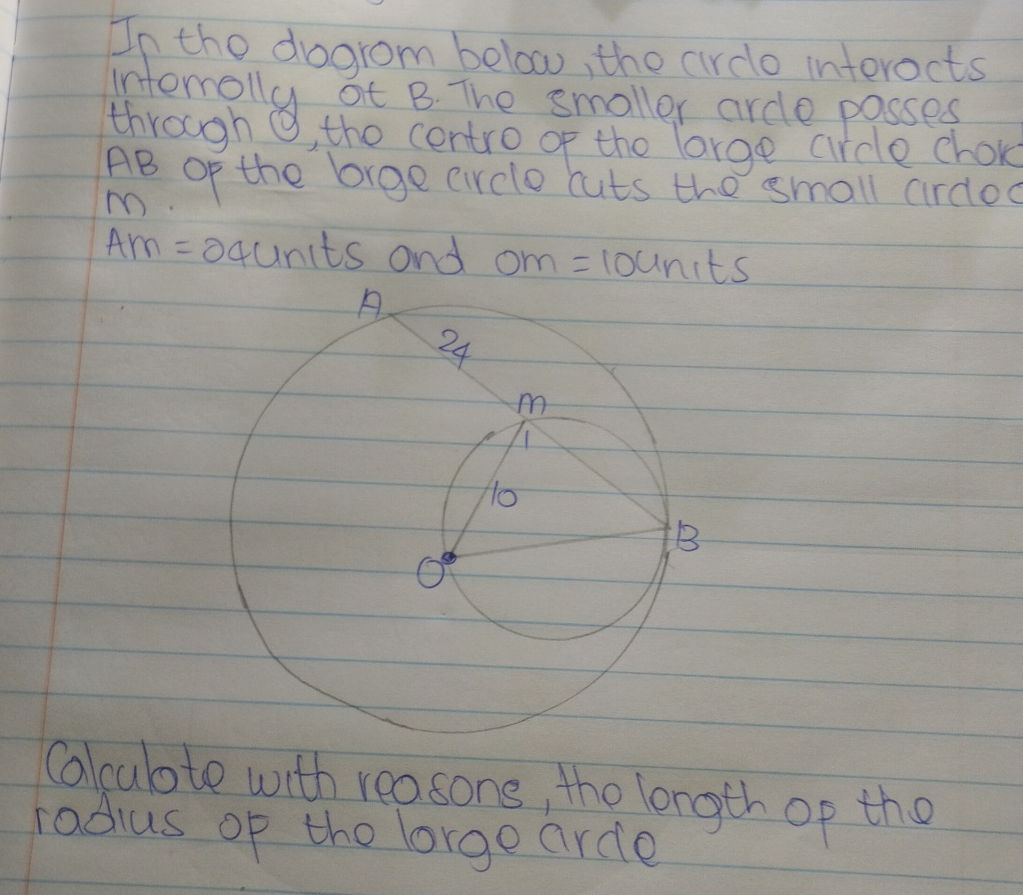 In the diagram below, the circle interacts
internally at B. The smaller circle passes
through O, the centre of the large circle chord
AB of the large circle cuts the small circle
m.
Am = 24units and om = 10units
A
24
m
1
10
B
O
Calculate with reasons, the length of the
radius of the large circle